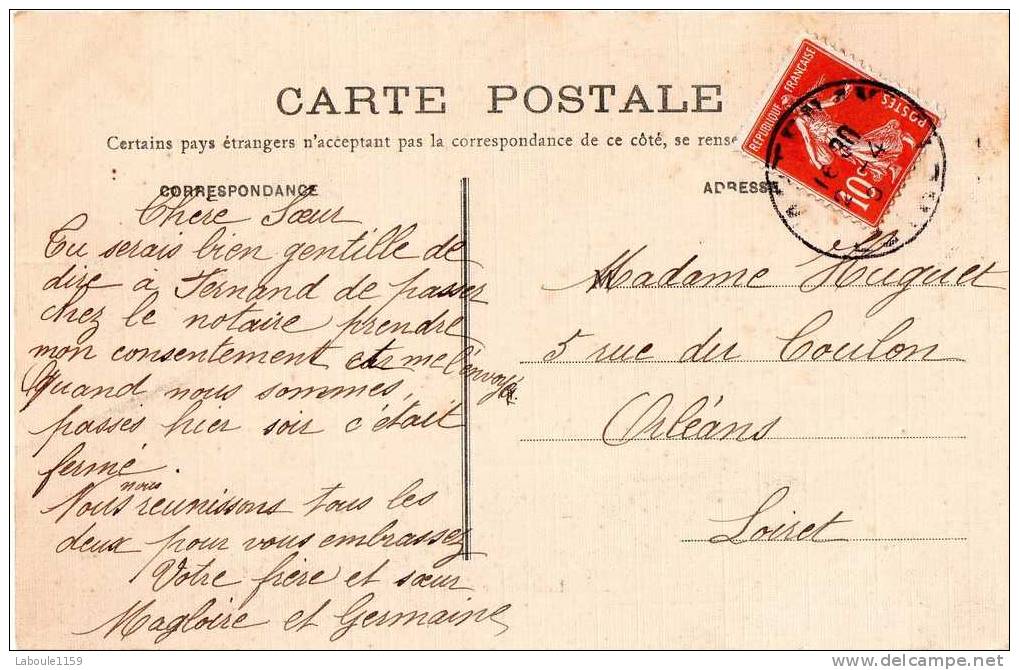 CARTE POSTALE
Certains pays étrangers n'acceptant pas la correspondance de ce côté, se rense
CORRESPONDANCE
Chère Sœur
Tu serais bien gentille de
dire à Fernand de passer
chez le notaire prendre
mon consentement et me l'envoyer.
Quand nous sommes
passés hier soir c'était
fermé.
Nous nous reunissons tous les
deux pour vous embrassez
Votre frère et sœur
Magloire et Germaine
ADRESSE
Madame Huguet
5 rue du Coulon
Orléans
Loiret
RÉPUBLIQUE FRANÇAISE
POSTES
10c
Laboule1159
delcampe.net